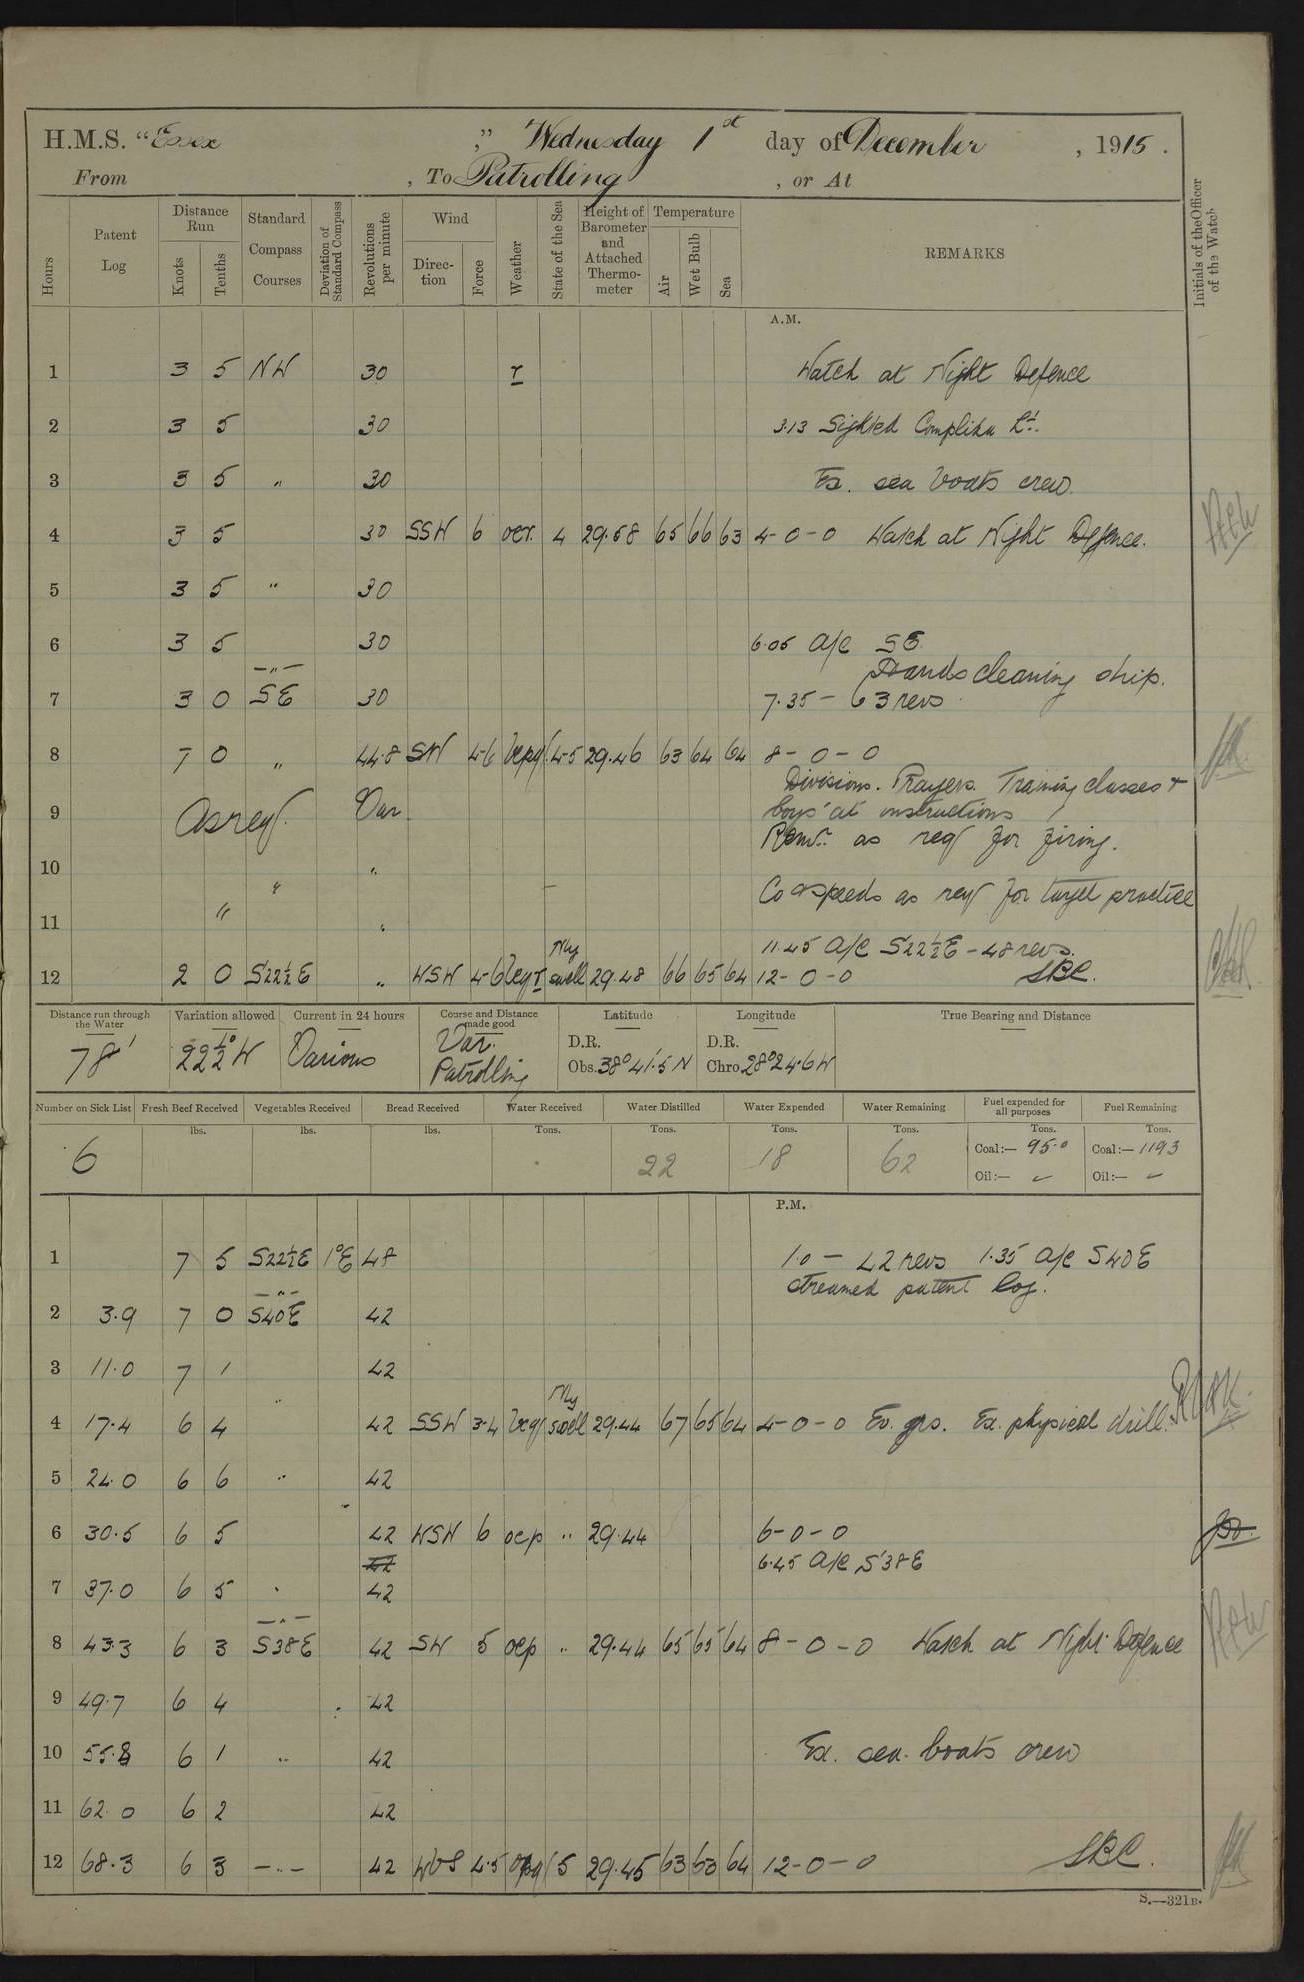 H.M.S. "Essex," Wednesday 1st day of December, 1915.
From , To Patrolling , or At
Hours Patent Log Distance Run Knots Tenths Standard Compass Courses Deviation of Standard Compass Revolutions per minute Wind Direction Force Weather State of the Sea Height of Barometer and Attached Thermometer Temperature Air Wet Bulb Sea REMARKS Initials of the Officer of the Watch
A.M.
1 3 5 NW 30 r Watch at Night Defence
2 3 5 30 3.13 Sighted Lt.
3 3 5 " 30 Ex. sea boats crew.
4 3 5 30 SSW 6 ocr. 4 29.58 65 66 63 4-0-0 Watch at Night Defence.
5 3 5 " 30
6 3 5 30 6.05 A/C SE
—"— Hands cleaning ship.
7 3 0 SE 30 7.35 — 63 revs
8 7 0 " 44.8 SW 4-6 4-5 29.46 63 64 64 8-0-0
Divisions. Prayers. Training classes +
9 As req. Var boys at instructions
Revs. as req for firing.
10 "
" Co & speeds as req for target practice
11 " "
11.45 A/C S22½E - 48 revs.
12 2 0 S22½E " WSW 4-6 swell 29.48 66 65 64 12-0-0 SBC.
Distance run through the Water Variation allowed Current in 24 hours Course and Distance made good Latitude Longitude True Bearing and Distance
78' 22½° W Various Var. Patrolling D.R. Obs. 38° 41'.5 N D.R. Chro 28° 24.6 W
Number on Sick List Fresh Beef Received Vegetables Received Bread Received Water Received Water Distilled Water Expended Water Remaining Fuel expended for all purposes Fuel Remaining
lbs. lbs. lbs. Tons. Tons. Tons. Tons. Tons. Tons.
6 22 18 62 Coal:— 95.0 Coal:— 1193
Oil:— Oil:—
P.M.
1 7 5 S22½E 1°E 48 1.0 — 42 revs 1.35 A/C S40E
—"— streamed patent log.
2 3.9 7 0 S40E 42
3 11.0 7 1 42
4 17.4 6 4 " 42 SSW 3-4 swell 29.44 67 65 64 4-0-0 Ev. qrs. Ex. physical drill.
5 24.0 6 6 " 42
6 30.5 6 5 42 WSW 6 ocp " 29.44 6-0-0
6.45 A/C S38E
7 37.0 6 5 " 42
—"—
8 43.3 6 3 S38E 42 SW 5 ocp " 29.44 65 65 64 8-0-0 Watch at Night Defence
9 49.7 6 4 42
10 55.8 6 1 " 42 Ex. sea boats crew
11 62.0 6 2 42
12 68.3 6 3 —"— 42 WbS 4.5 5 29.45 63 63 64 12-0-0 SBC.
S.—321B.